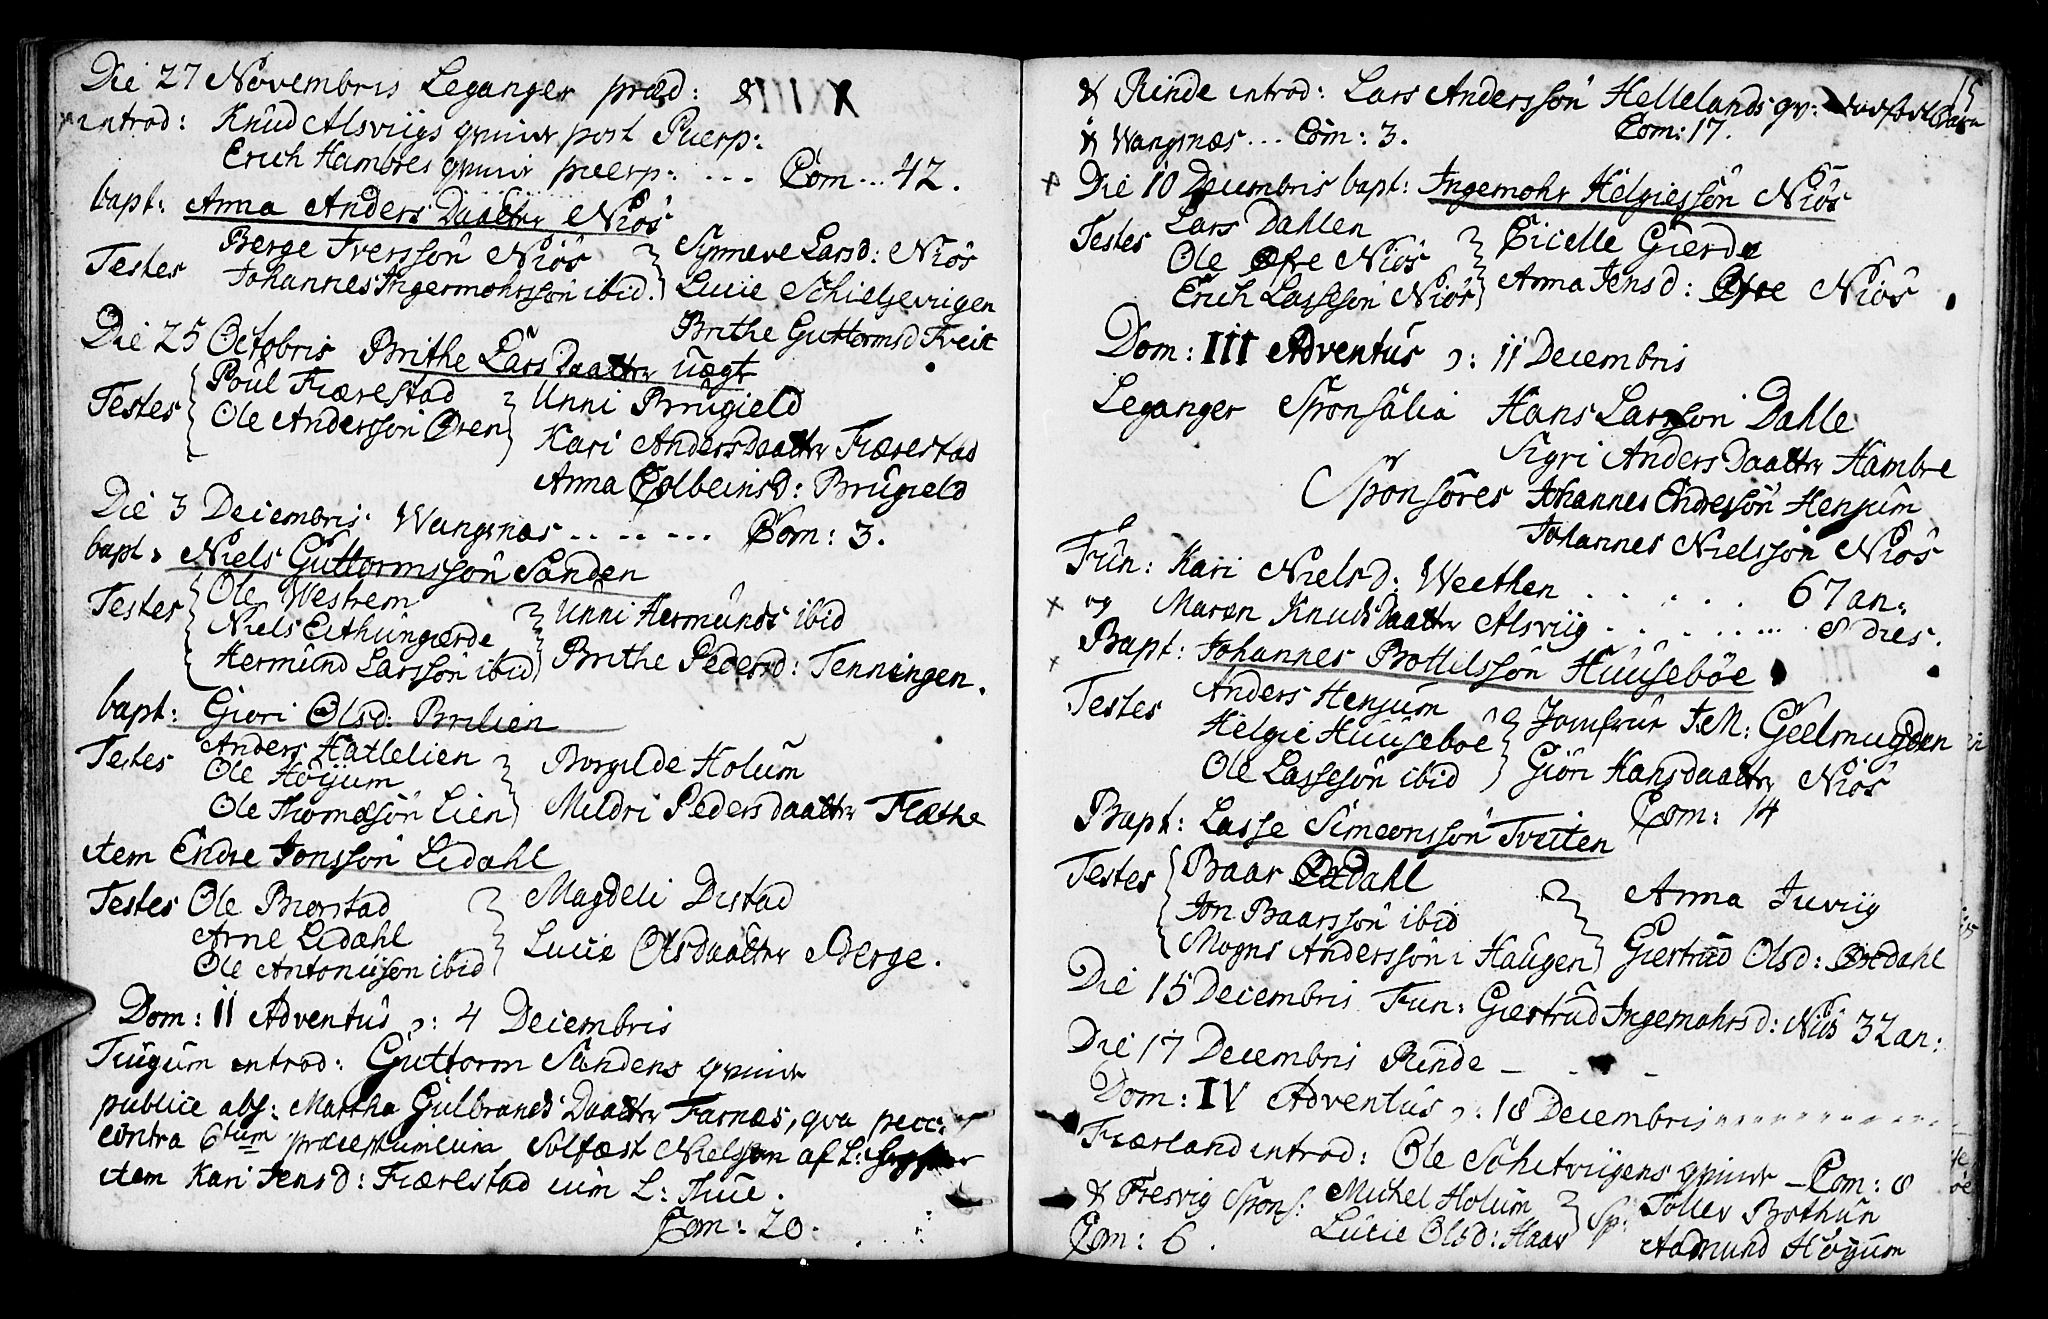 Die 27 Novembris Leganger præd: &
introd: Knud Alsviigs qvinde post Puerp:
Erich Hambres qvinde puerp: ... Com... 42.
bapt: Anna Anders Daatter Niös
Testes Berge Iversson Niös Synneve Larsd: Niös
Johannes Ingermohrsson ibid. Lucie
Brithe Guttormsd Tveit
Die 25 Octobris Brithe Lars Daatter uægt
Testes Poul Fiærestad Unni Brugield
Ole Andersson Øren Kari Anders Daatter Fiærestad
Anna Colbeinsd: Brugield
Die 3 Decembris Wangsnæs ....... Com: 3.
bapt. Niels Guttormsson Sanden
Testes Ole Westrem Unni Hermunds ibid
Niels Eithungierde
Hermund Larsson ibid Brithe Pedersd: Tenningen.
bapt: Giøri Olsd: Brilien
Testes Anders Hatlelien Borgilde Holum
Ole Höyum
Ole Thomæsön Lien Mildri Peders daatter Flæthe
item Endre Jonsson Lidahl
Testes Ole Biorstad Magdeli Distad
Arne Lidahl
Ole Antoniison ibid Lucie Olsdaatter Berge.
Dom: II Adventus ɔ: 4 Decembris
Tiugum introd: Guttorm Sandens qvinde
publice abs: Martha Gulbrands Daatter Farnæs, qva pecc:
contra 6tum præceptum cum Solfæst Nielsøn af L:
item Kari Jensd: Fiærestad cum L: Thue.
Com: 20.
15
& Rinde introd: Lars Andersson Hellelands qv: Barn
& Wangsnæs ... Com: 3. Com: 17.
Die 10 Decembris bapt: Ingemohr Helgiesson Niös
Testes Lars Dahlen Cicelle Gierde
Ole Øfre Niös
Erich Lasseson Niös Anna Jensd: Øfre Niös
Dom: III Adventus ɔ: 11 Decembris
Leganger Sponsalia Hans Larsson Dahle
Sigri Anders Daatter Hambre
Sponsores Johannes Endresson Henjum
Johannes Nielsson Niös
Fun: Kari Nielsd: Weethen ..... 67 an:
og Maren Knuds daatter Alsviig ...... 8 dies.
Bapt: Johannes Bottelsson Huusebøe
Testes Anders Henjum
Helgie Huusebøe Jomfrue J.M: Geelmuyden
Ole Lasseson ibid Giöri Hansdaatter Niös
Com: 14
Bapt: Lasse Simeonsson Tveiten
Testes Baar Oxdahl Anna Juviig
Jon Baarsson ibid
Mogns Andersson i Haugen Giertrud Olsd: Oxdahl
Die 15 Decembris Fun: Giertrud Ingemohrsd: Niös 32 an:
Die 17 Decembris Rinde - - -
Dom: IV Adventus ɔ: 18 Decembris
Fiærland introd: Ole qvinde - Com: 8
& Fresvig Spons: Michel Holum Sp: Toller Bothun
Com: 6. Lucie Olsd: Haar Aamund Höyum